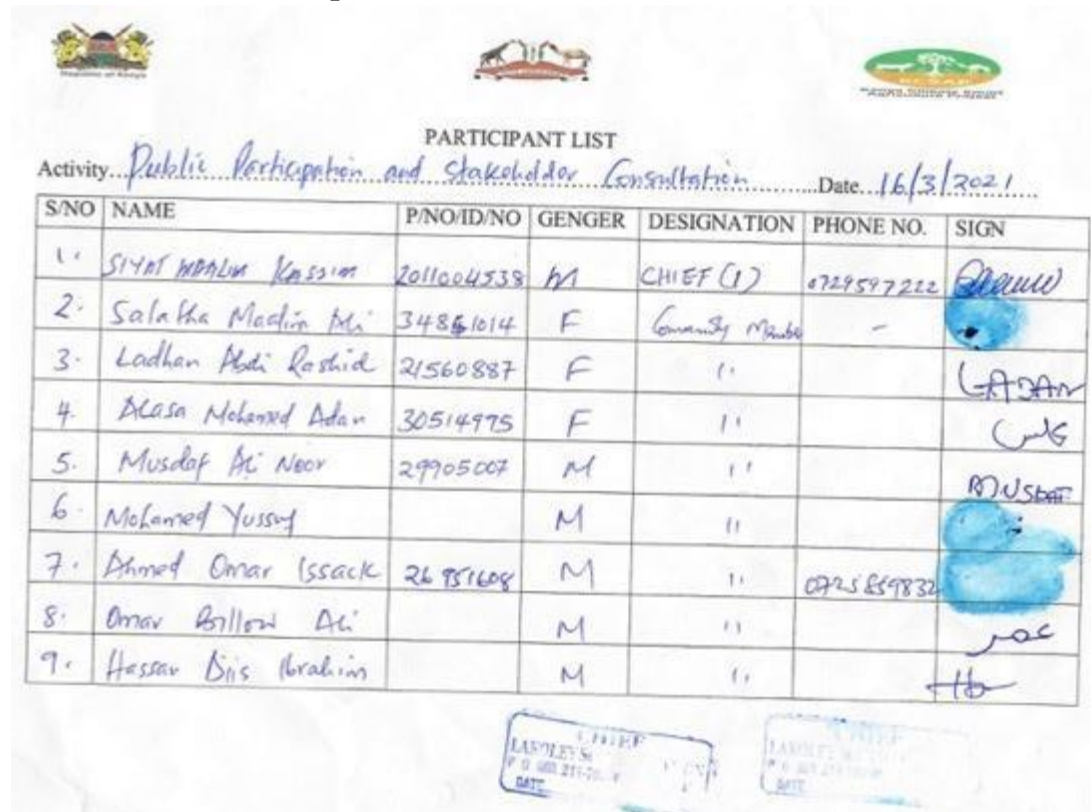 Republic of Kenya
PARTICIPANT LIST
Activity...Public Participation and Stakeholder Consultation...Date...16/3/2021
S/NO NAME P/NO/ID/NO GENGER DESIGNATION PHONE NO. SIGN
1. Kassim 2011004538 M CHIEF (1) 0729597222
2. Salatha Maalim Ali 34861014 F Community Member -
3. Ladhan Abdi Rashid 21560887 F " LADAN
4. Alasa Mohamed Adan 30514975 F "
5. Musdaf Ali Noor 29905007 M " MUSDAF
6. Mohamed Yussuf M "
7. Ahmed Omar Issack 26951608 M " 0725859832
8. Omar Billow Ali M " عمر
9. Hassan Diis Ibrahim M "
CHIEF
DATE
CHIEF